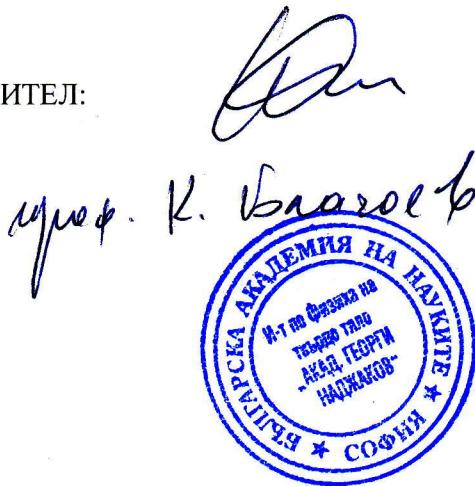 ИТЕЛ:
проф. К. Благоев
БЪЛГАРСКА АКАДЕМИЯ НА НАУКИТЕ ★ СОФИЯ ★
И-т по Физика на
твърдо тяло
„АКАД. ГЕОРГИ
НАДЖАКОВ"